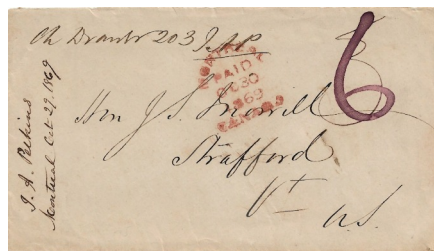 Ch Drawer 203 J.A.P
MONTREAL
PAID 6
OC 30
1869
CANADA
6
Hon J. S. Morrill
Strafford
Vt
U.S.
J. A. Perkins
Montreal Oct 29, 1869